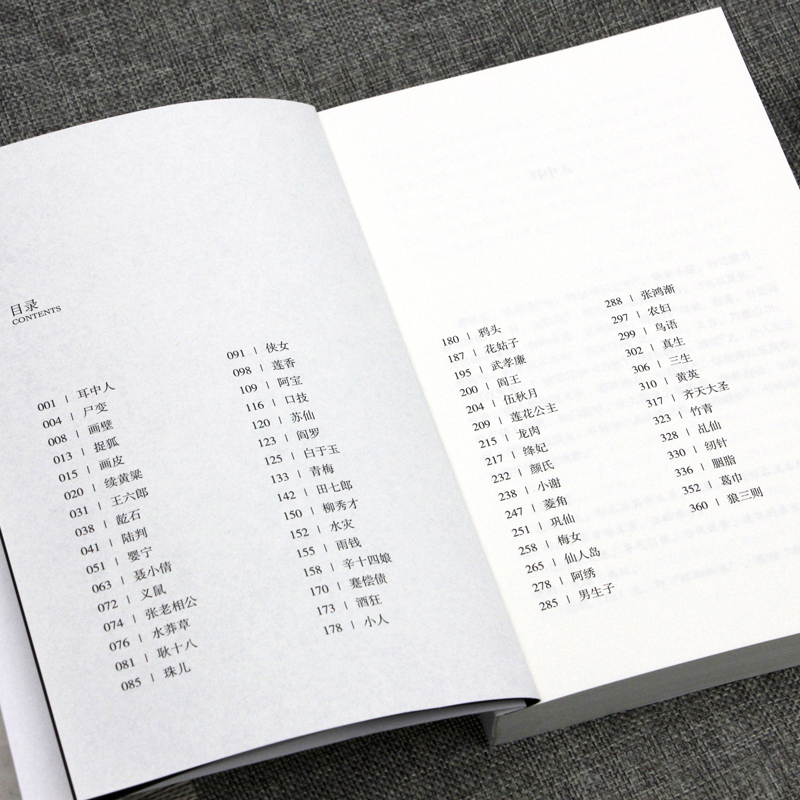 目录
CONTENTS
001 | 耳中人
004 | 尸变
008 | 画壁
013 | 捉狐
015 | 画皮
020 | 续黄粱
031 | 王六郎
038 | 龁石
041 | 陆判
051 | 婴宁
063 | 聂小倩
072 | 义鼠
074 | 张老相公
076 | 水莽草
081 | 耿十八
085 | 珠儿
091 | 侠女
098 | 莲香
109 | 阿宝
116 | 口技
120 | 苏仙
123 | 阎罗
125 | 白于玉
133 | 青梅
142 | 田七郎
150 | 柳秀才
152 | 水灾
155 | 雨钱
158 | 辛十四娘
170 | 蹇偿债
173 | 酒狂
178 | 小人
180 | 鸦头
187 | 花姑子
195 | 武孝廉
200 | 阎王
204 | 伍秋月
209 | 莲花公主
215 | 龙肉
217 | 绛妃
232 | 颜氏
238 | 小谢
247 | 菱角
251 | 巩仙
258 | 梅女
265 | 仙人岛
278 | 阿绣
285 | 男生子
288 | 张鸿渐
297 | 农妇
299 | 鸟语
302 | 真生
306 | 三生
310 | 黄英
317 | 齐天大圣
323 | 竹青
328 | 乩仙
330 | 纫针
336 | 胭脂
352 | 葛巾
360 | 狼三则